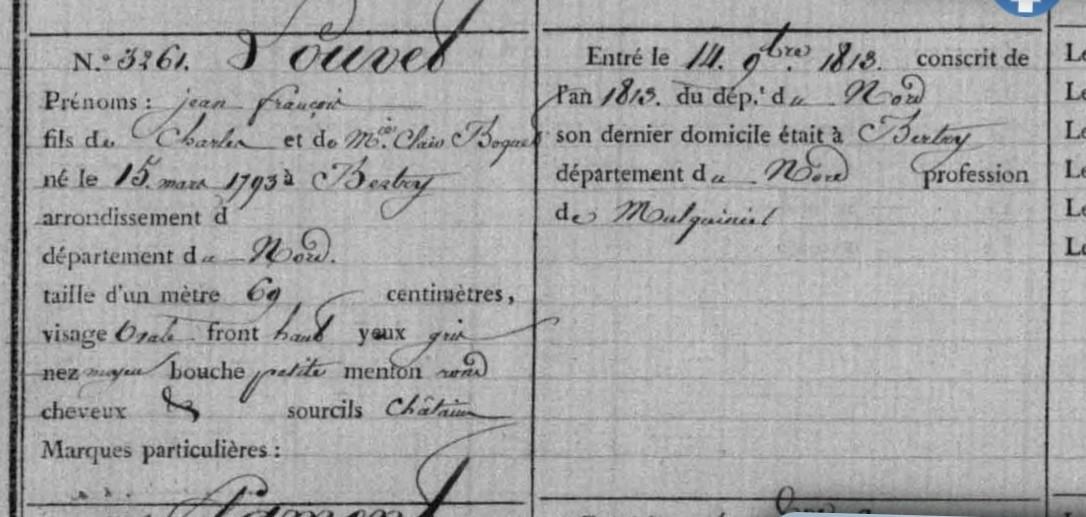 N.º 3261. Louvet
Prénoms : jean françois
fils de Charles et de M.ie Claire Boquet
né le 15. mars 1793 à Bertry
arrondissement d
département du Nord.
taille d'un mètre 69 centimètres,
visage Ovale front haut yeux gris
nez moyen bouche petite menton rond
cheveux & sourcils Châtains
Marques particulières :
Entré le 14. 9bre. 1813. conscrit de
l'an 1813. du dép.t du Nord
son dernier domicile était à Bertry
département du Nord profession
de Mulquinier
Le
Le
Le
Le
Le
Le